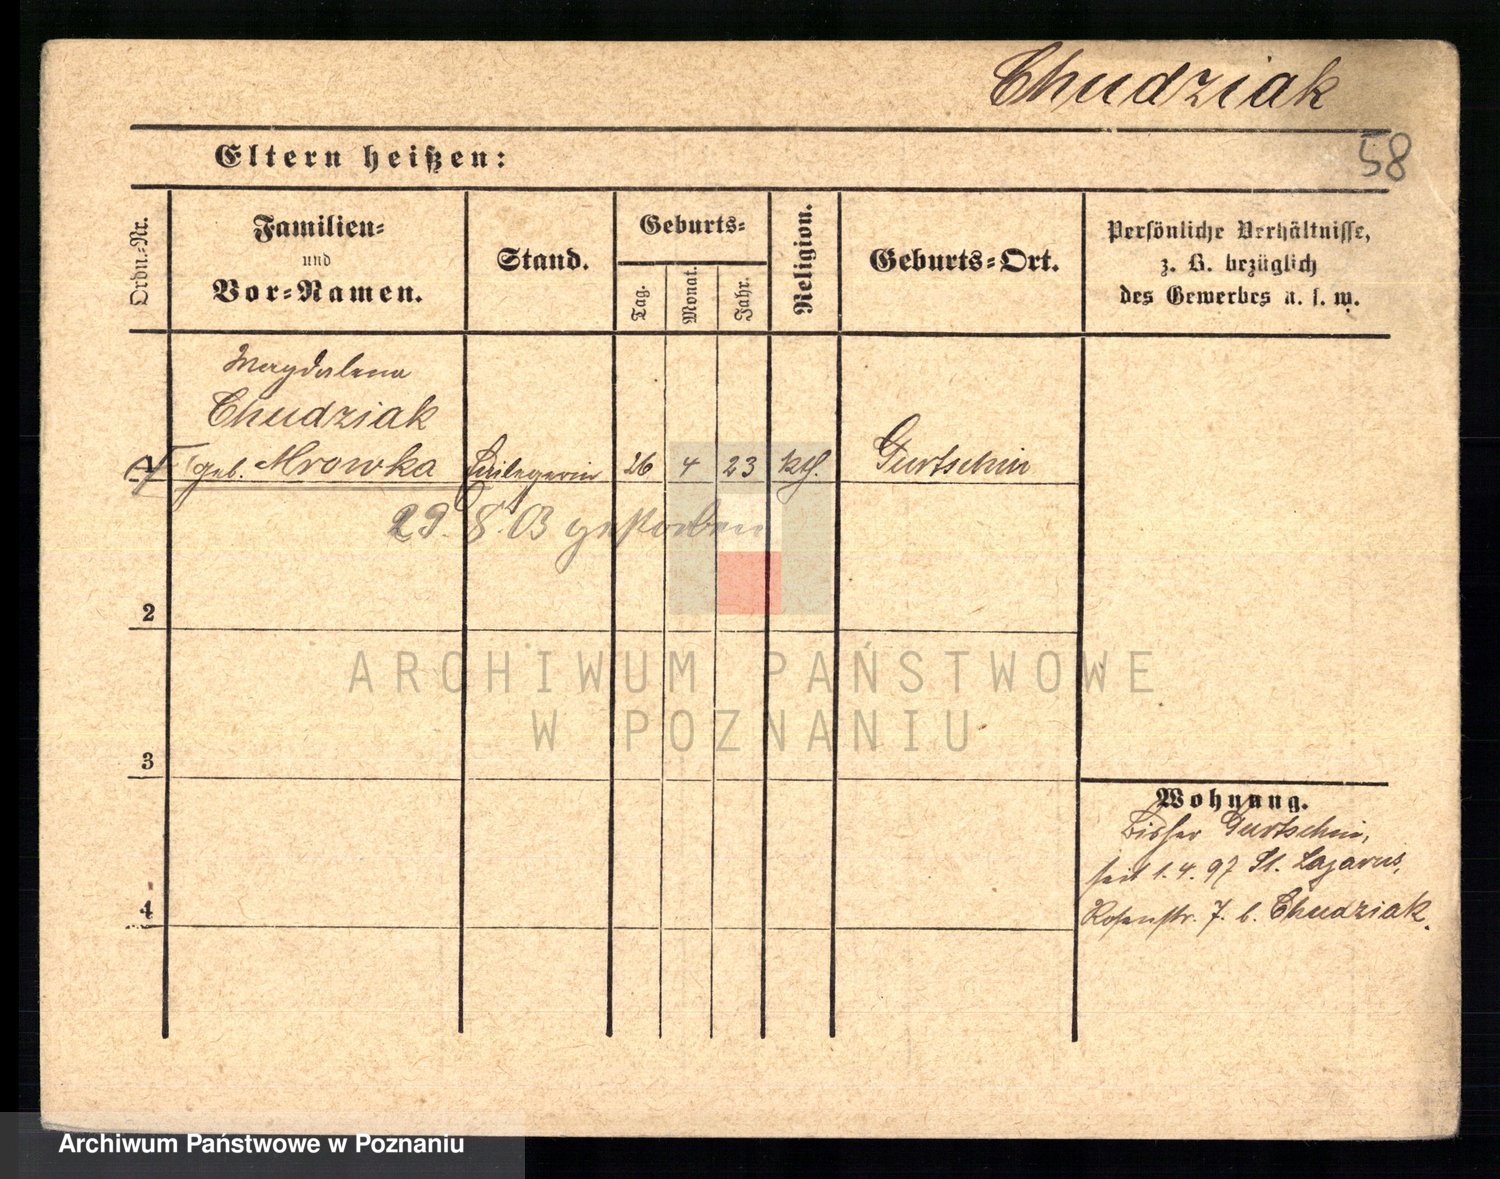 Chudziak
58
Eltern heißen:
Ordn.-Nr.
Familien-
und
Vor-Namen.
Stand.
Geburts-
Tag.
Monat.
Jahr.
Religion.
Geburts-Ort.
Persönliche Verhältnisse,
z. B. bezüglich
des Gewerbes u. s. w.
Magdalena
Chudziak
geb. Mrowka
26 4 23 kth. Gurtschin
29. 8. 03 gestorben
2
3
4
Wohnung.
Bisher Gurtschin,
seit 1.4.97 St. Lazarus,
Rosenstr. 7. b. Chudziak.
ARCHIWUM PAŃSTWOWE
W POZNANIU
Archiwum Państwowe w Poznaniu